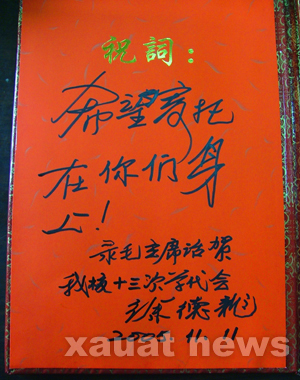 祝詞：
希望寄托
在你们身
上！
录毛主席语贺
我校十三次学代会
2005.11.11
xauat news